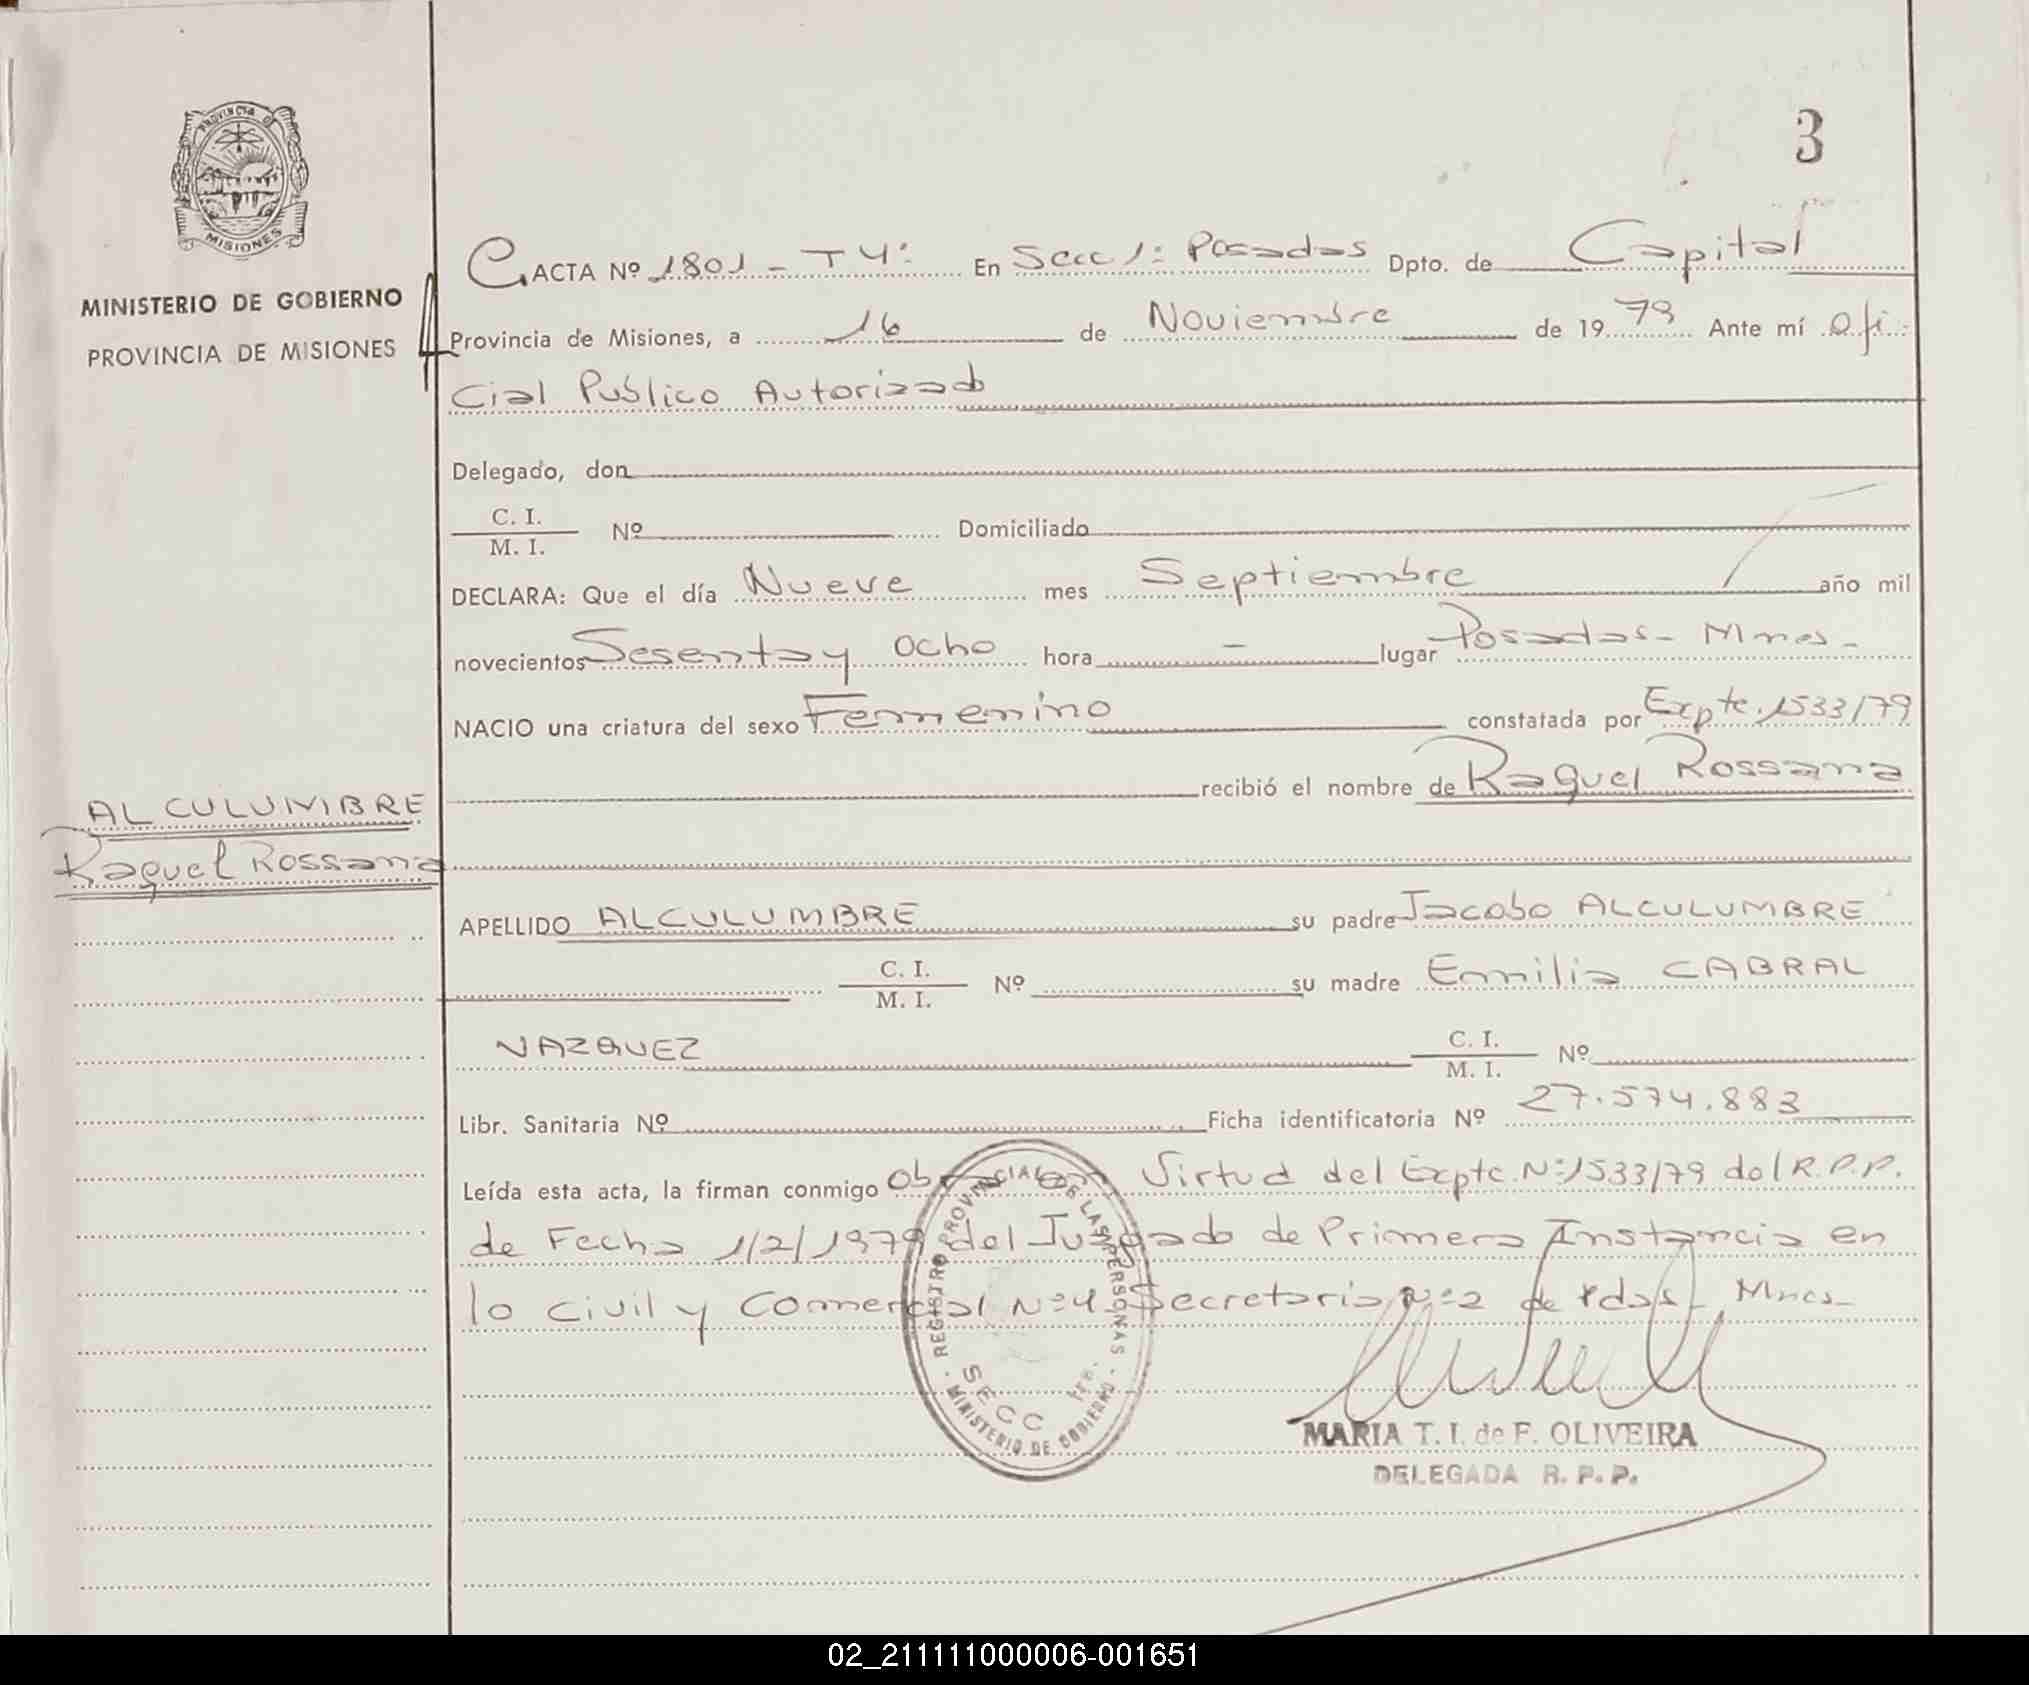 3
PROVINCIA D
MISIONES
MINISTERIO DE GOBIERNO
PROVINCIA DE MISIONES
ACTA Nº 1801 - T4º En Secc 1º Posadas Dpto. de Capital
Provincia de Misiones, a 16 de Noviembre de 1979 Ante mí Ofi-
cial Publico Autorizado
Delegado, don
C. I.
M. I.
Nº Domiciliado
DECLARA: Que el día Nueve mes Septiembre año mil
novecientos Sesenta y Ocho hora - lugar Posadas - Mnes -
NACIO una criatura del sexo Femenino constatada por Expte. 1533/79
recibió el nombre de Raquel Rossana
ALCULUMBRE
Raquel Rossana
APELLIDO ALCULUMBRE su padre Jacobo ALCULUMBRE
C. I.
M. I.
Nº su madre Emilia CABRAL
VAZQUEZ
C. I.
M. I.
Nº
Libr. Sanitaria Nº Ficha identificatoria Nº 27.574.883
Leída esta acta, la firman conmigo Obra en Virtud del Expte. Nº 1533/79 del R.P.P.
de Fecha 1/2/1979 del Juzgado de Primera Instancia en
lo Civil y Comercial Nº 4 Secretaria Nº 2 de Pdas - Mnes -
REGISTRO PROVINCIAL DE LAS PERSONAS
SECC 1ra.
MINISTERIO DE GOBIERNO
MARIA T. I. de F. OLIVEIRA
DELEGADA R. P. P.
02_211111000006-001651